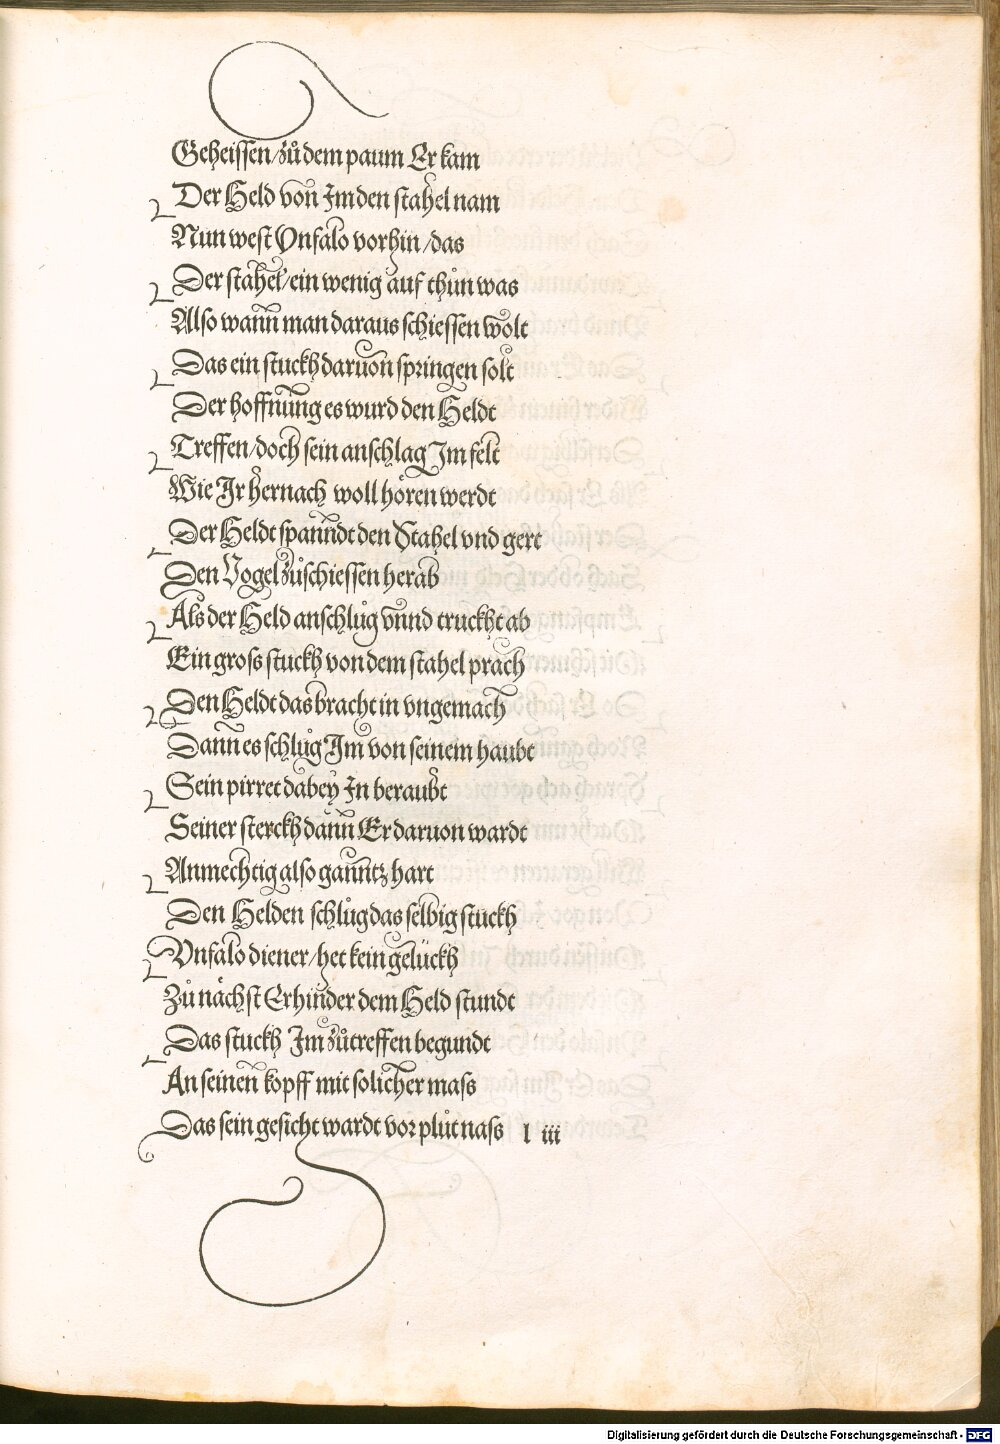 Geheissen/zů dem paum Er kam
Der Held von Im den stahel nam
Nun west Vnfalo vorhin/das
Der stahel/ein wenig auf thůn was
Also wann man daraus schiessen wolt
Das ein stuckh daruon springen solt
Der hoffnung es wurd den Heldt
Treffen/doch sein anschlag Im felt
Wie Ir hernach woll hören werdt
Der Heldt spanndt den Stahel vnd gert
Den Vogel zůschiessen herab
Als der Held anschlůg vnnd truckht ab
Ein gross stuckh von dem stahel prach
Den Heldt das bracht in vngemach
Dann es schlůg Im von seinem haubt
Sein pirret dabey In beraubt
Seiner sterckh dann Er daruon wardt
Anmechtig also ganntz hart
Den Helden schlůg das selbig stuckh
Vnfalo diener/het kein gelückh
Zů nächst Er hinder dem Held stundt
Das stuckh Im zůtreffen begundt
An seinen kopff mit solicher mass
Das sein gesicht wardt vor plůt nass l iii
Digitalisierung gefördert durch die Deutsche Forschungsgemeinschaft - DFG